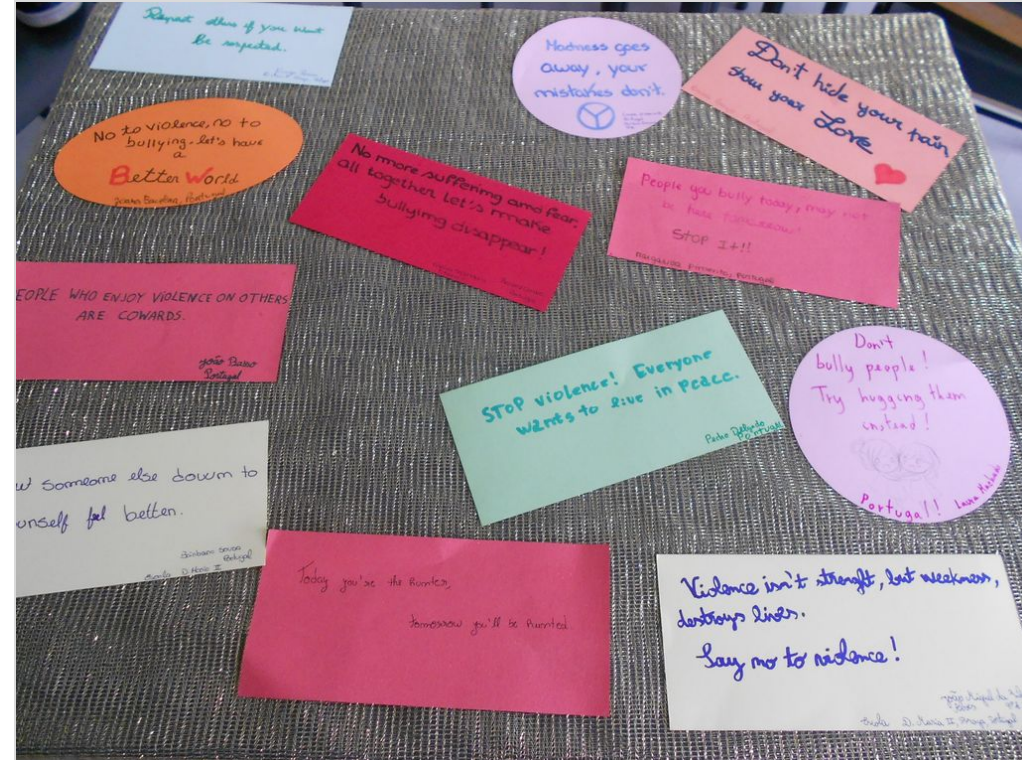 Respect others if you want
Be respected.
Madness goes
away, your
mistakes don't.
Don't hide your pain
show your Love
No to violence, no to
bullying. let's have
a
Better World
Portugal
No more suffering and fear,
all together let's make
bullying disappear!
People you bully today, may not
be here tomorrow!
STOP IT!!
Portugal
EOPLE WHO ENJOY VIOLENCE ON OTHERS
ARE COWARDS.
João
Portugal
STOP violence! Everyone
wants to live in peace.
Pedro Delgado
Portugal
Don't
bully people!
Try hugging them
instead!
Portugal! Laura Machado
w someone else down to
urself feel better.
Bárbara Sousa
Portugal
Escola D. Maria II
Today you're the Hunter,
tomorrow you'll be Hunted
Violence isn't strenght, but weekness,
destroys lives.
Say no to violence!
João Miguel da
Escola D. Maria II, Braga, Portugal